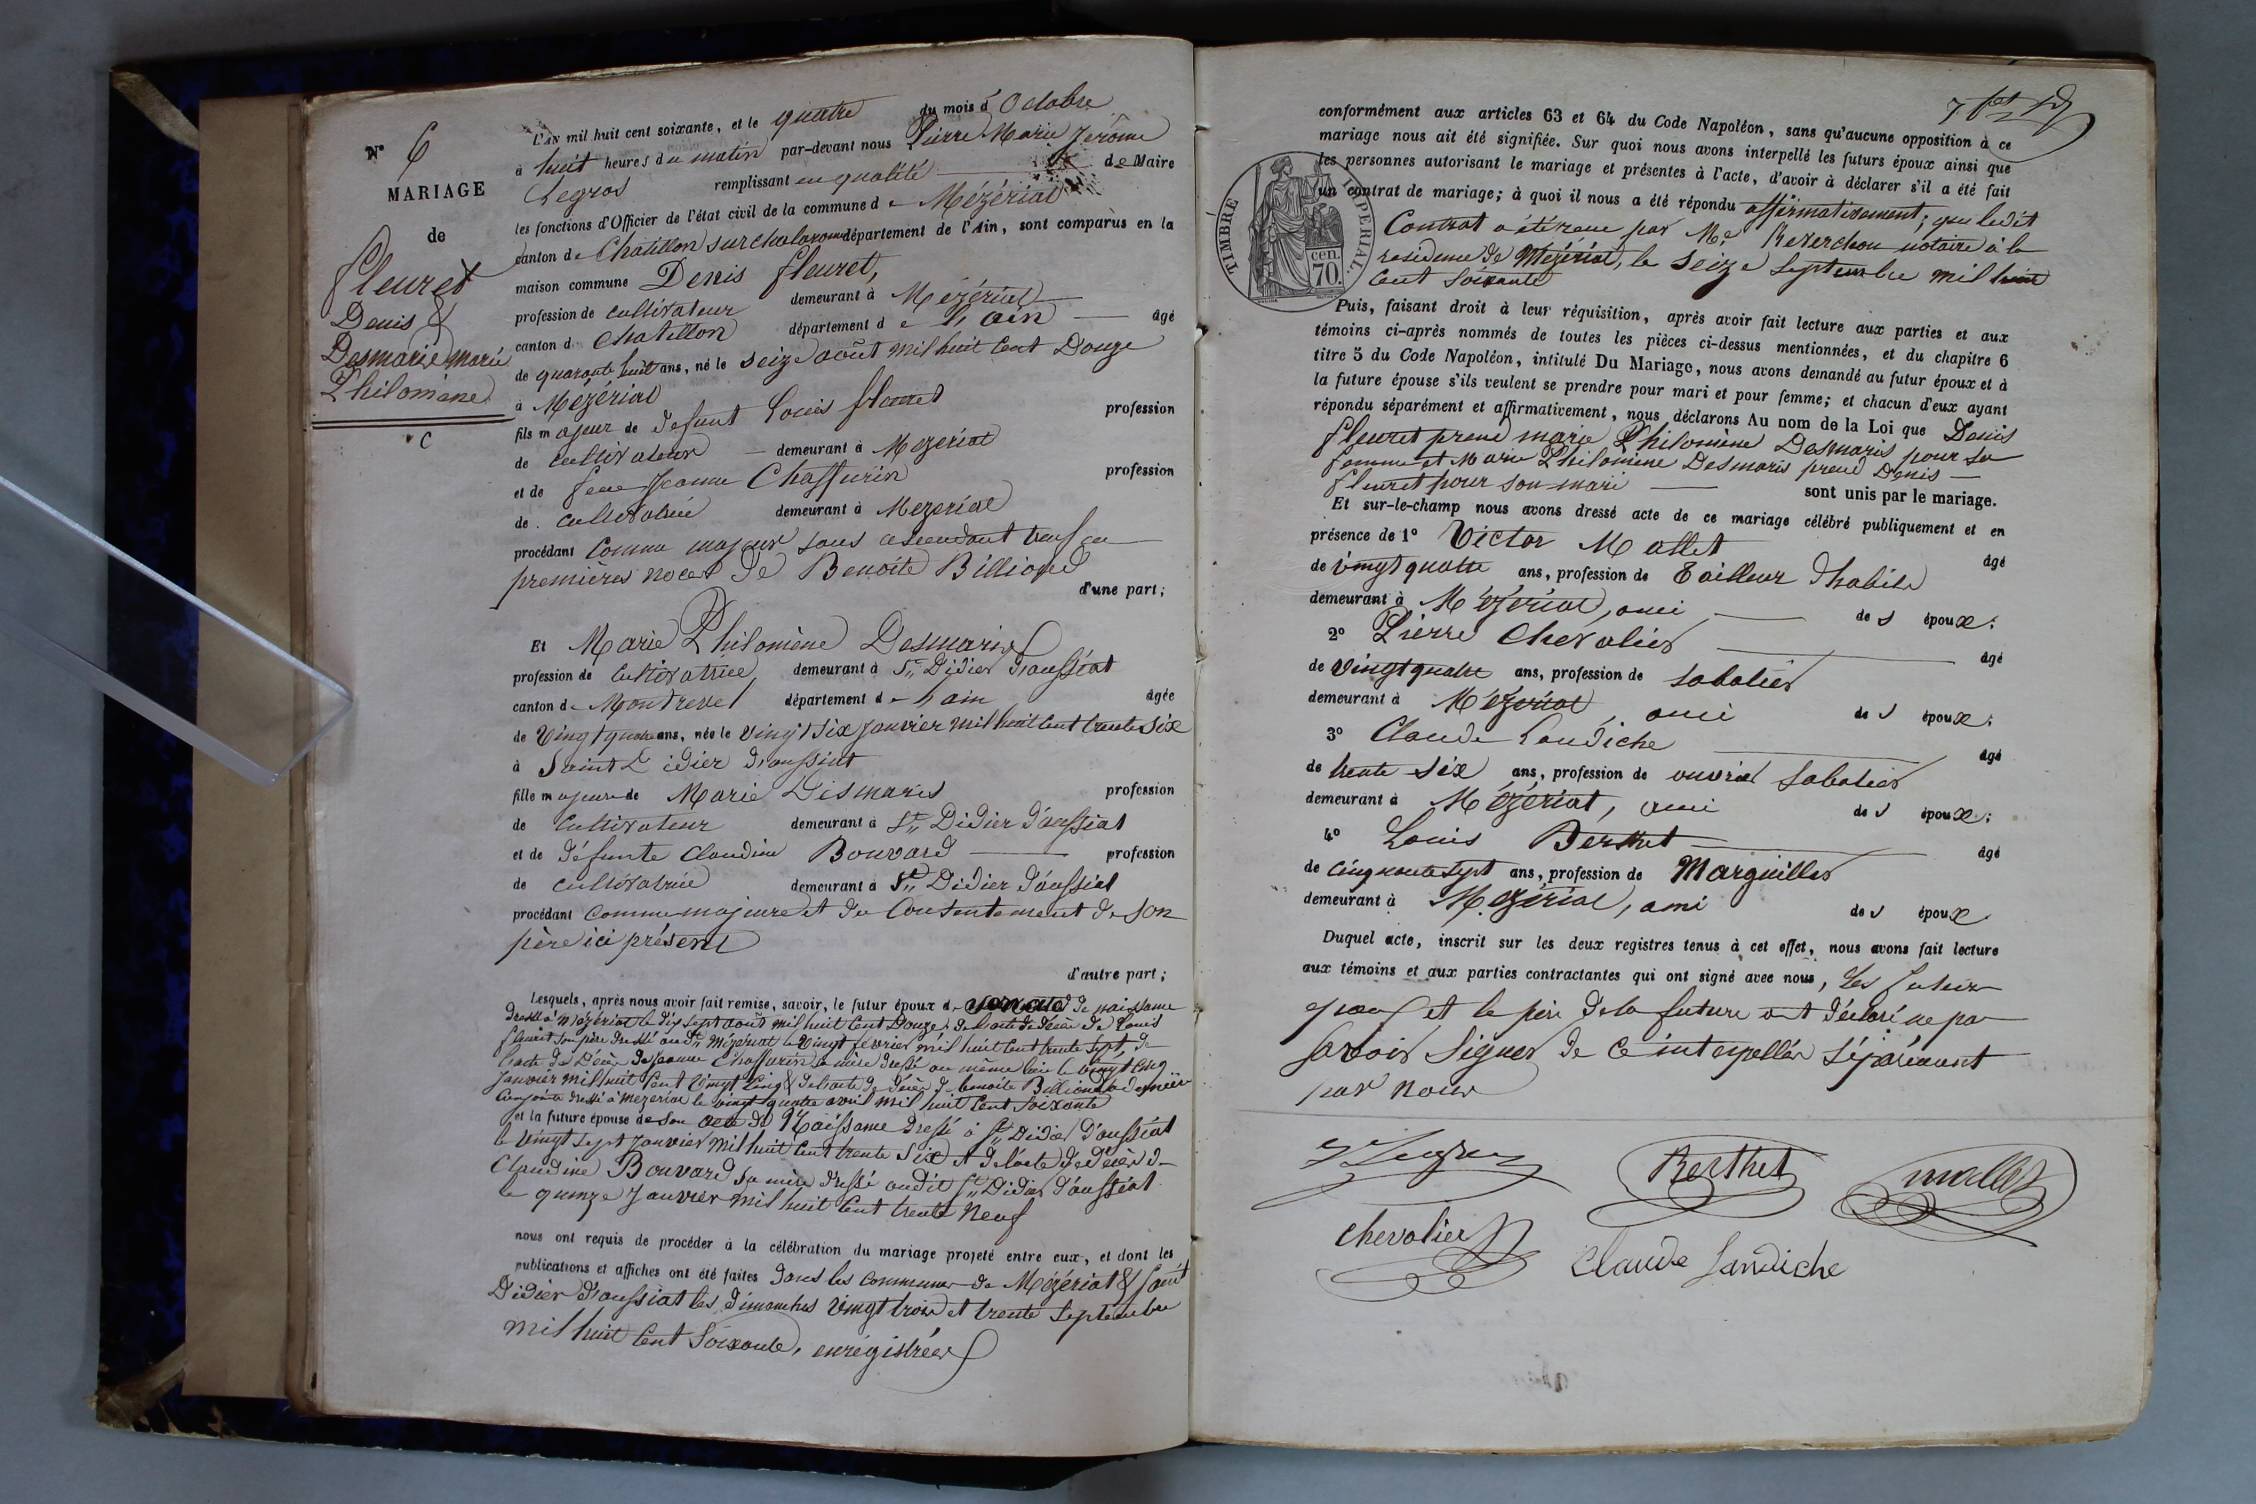 N° 6
MARIAGE
de
fleuret
Denis &
Desmaris marie
Philomène
C
L'AN mil huit cent soixante, et le quatre du mois d'Octobre
à huit heures du matin par-devant nous Pierre Marie Jérôme
Legros remplissant en qualité de Maire
les fonctions d'Officier de l'état civil de la commune de Mézériat
canton de Chatillon sur chalaronne département de l'Ain, sont comparus en la
maison commune Denis fleuret,
profession de cultivateur demeurant à Mézériat
canton d. Chatillon département de l'ain âgé
de quarante huit ans, né le seize août mil huit cent Douze
à Mézériat
fils majeur de défunt Louis fleuret profession
de cultivateur demeurant à Mezeriat
et de feue Jeanne Chaffurin profession
de cultivatrice demeurant à Mezeriat
procédant comme majeur sans ascendant veuf en
premières noces de Benoîte Billioud
d'une part;
Et Marie Philomène Desmaris
profession de Cultivatrice, demeurant à St Didier d'aussiat
canton de Montrevel département de l'ain âgée
de Vingt quatre ans, née le vingt six janvier mil huit cent trente six
à Saint Didier d'aussiat
fille majeure de Marie Desmaris profession
de Cultivateur demeurant à St Didier d'aussiat
et de défunte Claudine Bouvard profession
de cultivatrice demeurant à St Didier d'aussiat
procédant comme majeure et du Consentement de son
père ici présent
d'autre part;
Lesquels, après nous avoir fait remise, savoir, le futur époux de de naissance
dressé à Mézériat le dix sept août mil huit cent Douze, de l'acte de décès de Louis
fleuret son père dressé audit Mézeriat le vingt février mil huit cent trente sept de
l'acte de Décès de Jeanne Chaffurin sa mère dressé au même lieu le vingt cinq
Janvier mil huit cent vingt cinq & de l'acte de décès de benoîte Billioud
dressé à Mezeriat le vingt quatre avril mil huit cent soixante
et la future épouse de son acte de Naissance dressé à St Didier d'aussiat
le vingt sept Janvier mil huit cent trente six et de l'acte de décès de
Claudine Bouvard sa mère dressé audit St Didier d'aussiat
le quinze Janvier mil huit cent trente Neuf
nous ont requis de procéder à la célébration du mariage projeté entre eux, et dont les
publications et affiches ont été faites dans les communes de Mézériat & Saint
Didier d'aussiat les dimanches vingt trois et trente Septembre
mil huit cent Soixante, enrégistrées
conformément aux articles 63 et 64 du Code Napoléon, sans qu'aucune opposition à ce
mariage nous ait été signifiée. Sur quoi nous avons interpellé les futurs époux ainsi que
les personnes autorisant le mariage et présentes à l'acte, d'avoir à déclarer s'il a été fait
un contrat de mariage; à quoi il nous a été répondu affirmativement; que ledit
Contrat a été reçu par Me Reverchon notaire à la
residence de Mézériat, le seize Septembre mil huit
Cent Soixante
TIMBRE IMPERIAL.
70. cen.
Puis, faisant droit à leur réquisition, après avoir fait lecture aux parties et aux
témoins ci-après nommés de toutes les pièces ci-dessus mentionnées, et du chapitre 6
titre 5 du Code Napoléon, intitulé Du Mariage, nous avons demandé au futur époux et à
la future épouse s'ils veulent se prendre pour mari et pour femme; et chacun d'eux ayant
répondu séparément et affirmativement, nous déclarons Au nom de la Loi que Denis
fleuret prend marie Philomène Desmaris pour sa
femme et Marie Philomène Desmaris prend Denis
fleuret pour son mari sont unis par le mariage.
Et sur-le-champ nous avons dressé acte de ce mariage célébré publiquement et en
présence de 1° Victor Mallet âgé
de vingt quatre ans, profession de Tailleur d'habits
demeurant à Mézériat, ami des époux;
2° Pierre Chevalier âgé
de vingt quatre ans, profession de sabotier
demeurant à Mézériat, ami des époux;
3° Claude Landiche âgé
de trente six ans, profession de ouvrier sabotier
demeurant à Mézériat, ami des époux;
4° Louis Berthet âgé
de cinquante sept ans, profession de Marguiller
demeurant à Mézériat, ami des époux
Duquel acte, inscrit sur les deux registres tenus à cet effet, nous avons fait lecture
aux témoins et aux parties contractantes qui ont signé avec nous, Les futurs
époux et le père de la future ont déclaré ne pas
savoir signer de ce interpellés séparément
par nous
Berthet
mallet
chevalier
Claude Landiche